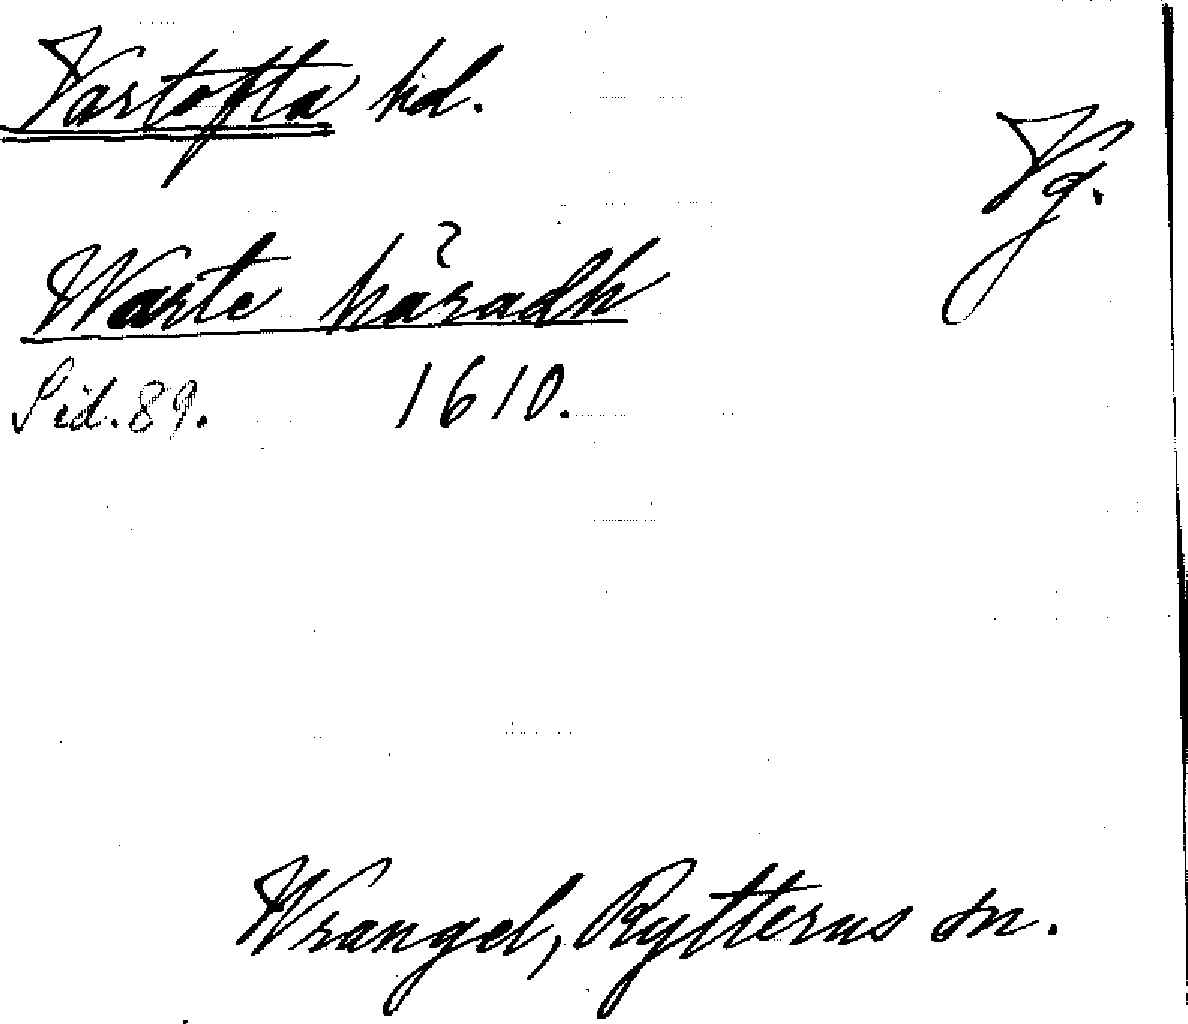 Vartofta hd.
Vg.
Warte häradh
Sid. 89. 1610.
Wrangel, Rytterns sn.